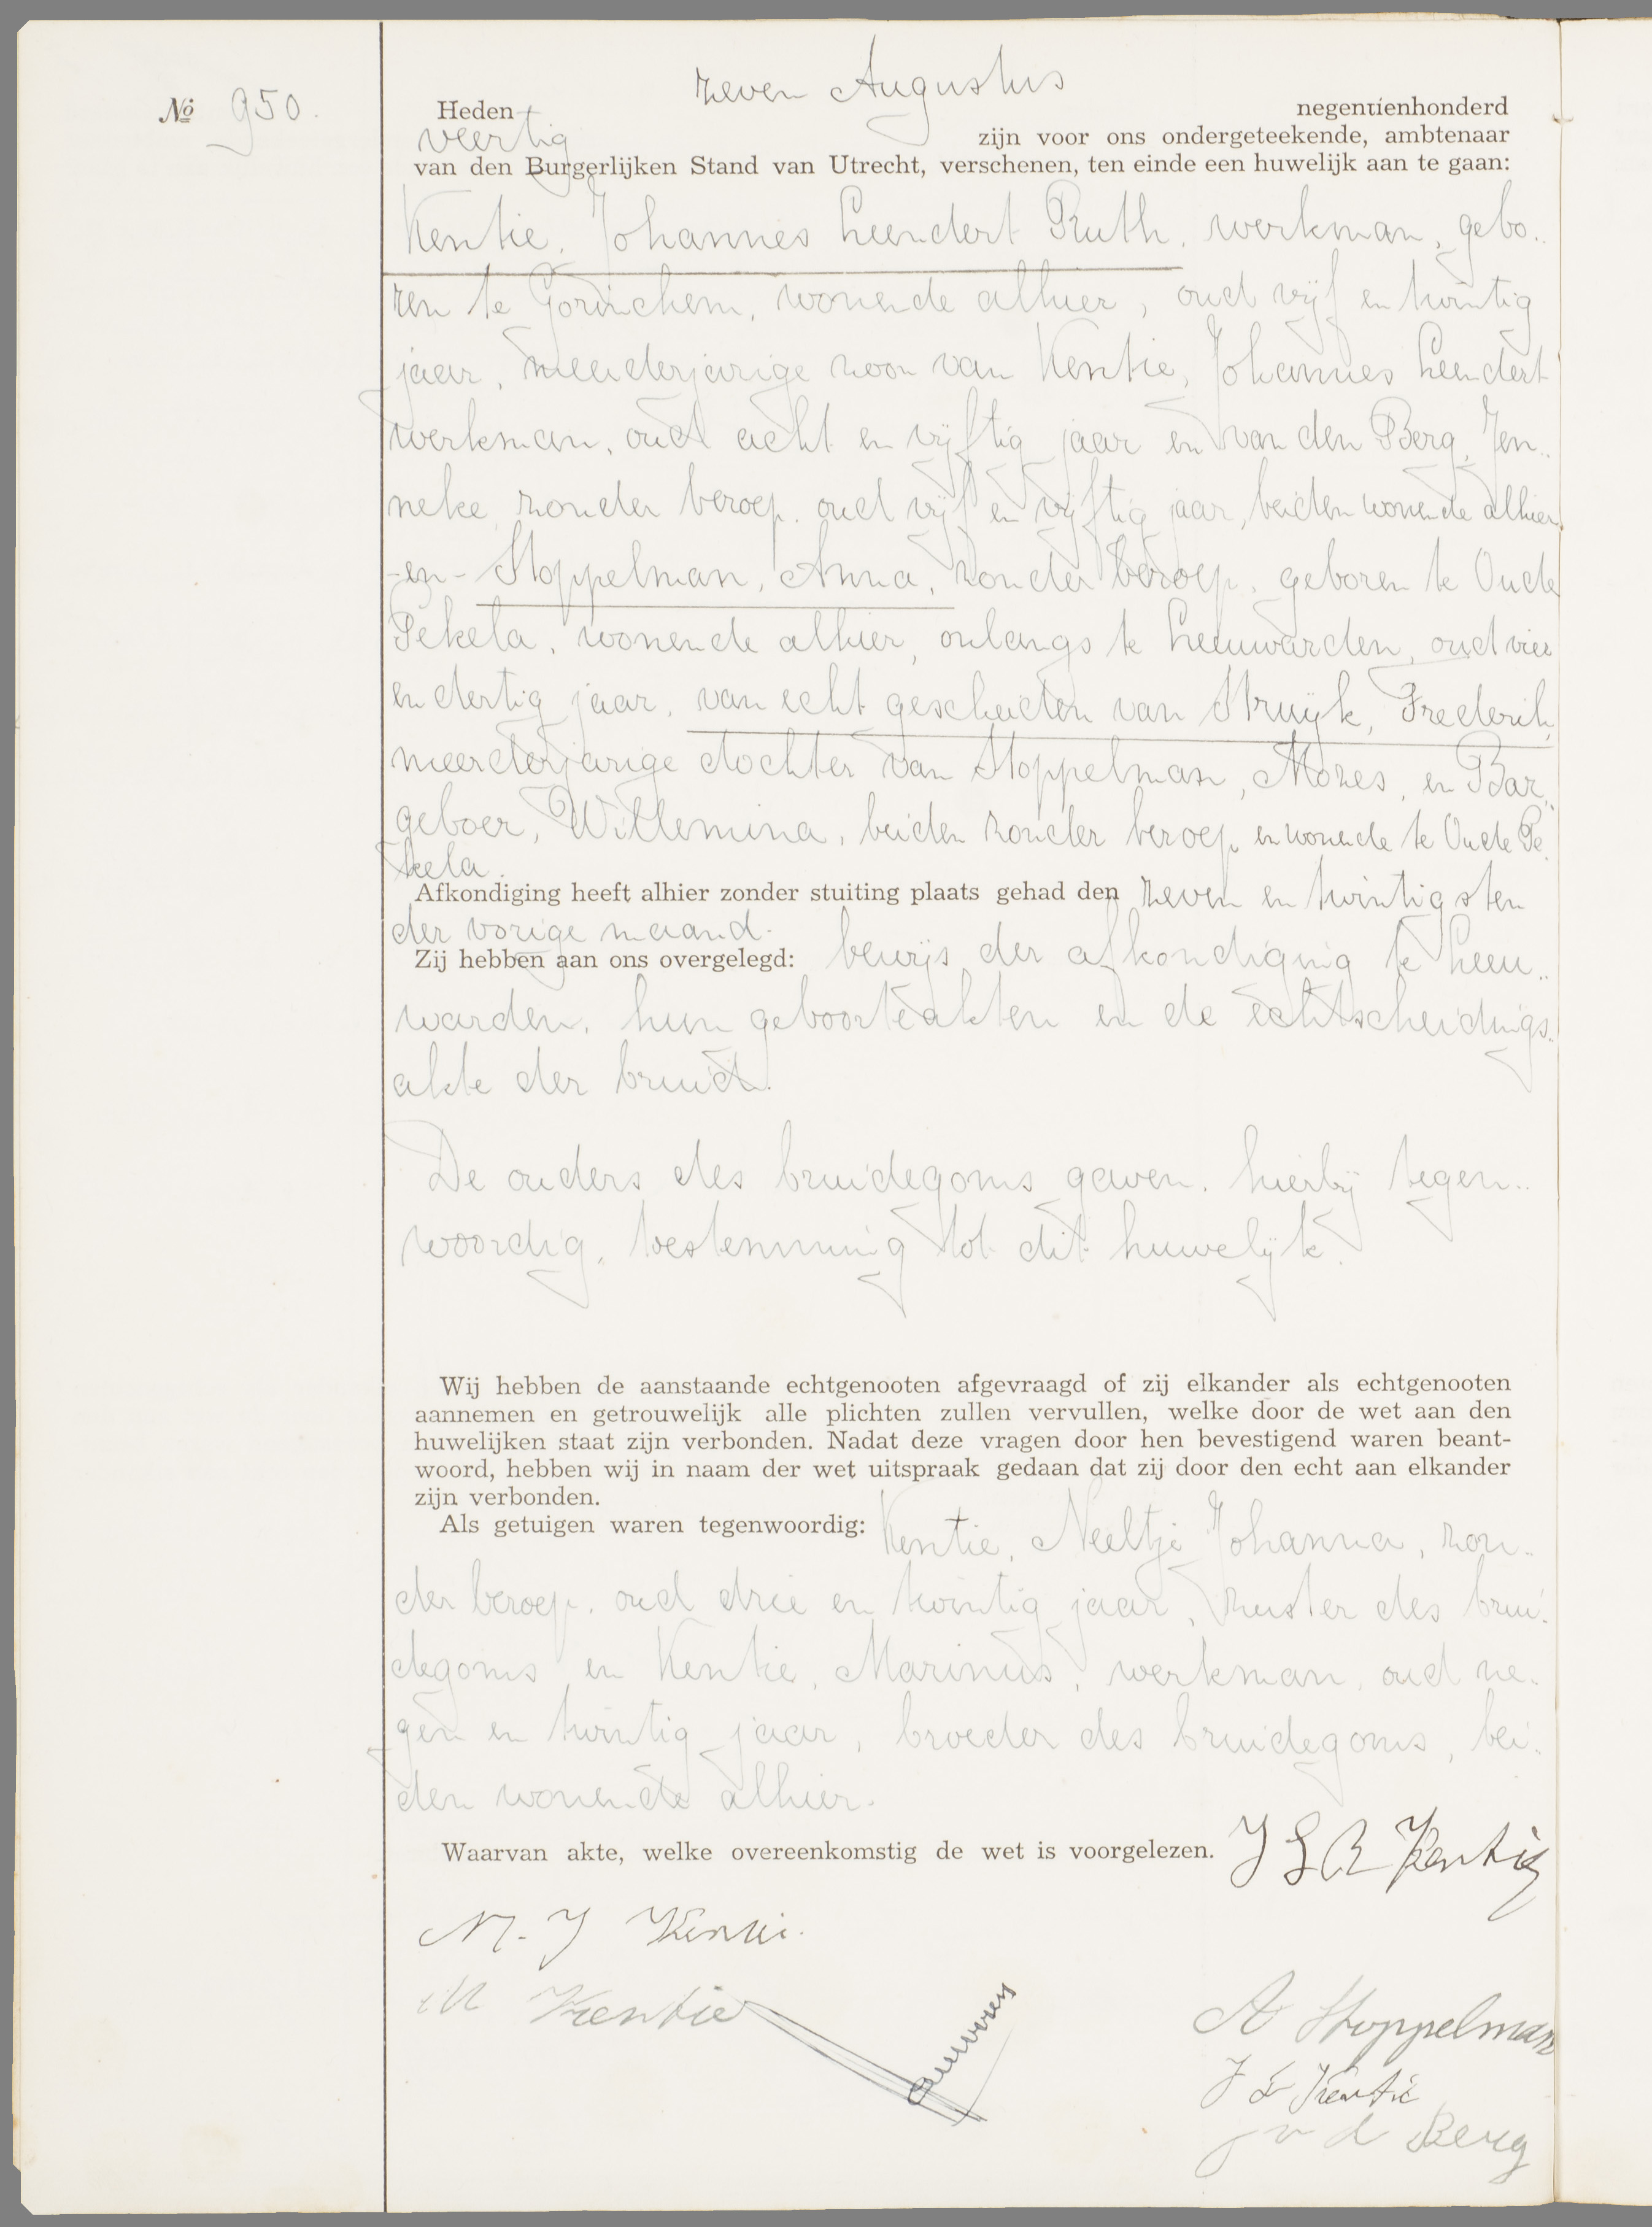 № 950.
Heden zeven Augustus negentienhonderd
veertig zijn voor ons ondergeteekende, ambtenaar
van den Burgerlijken Stand van Utrecht, verschenen, ten einde een huwelijk aan te gaan:
Kentie, Johannes Leendert Ruth, werkman, gebo..
ren te Gorinchem, wonende alhier, oud vijf en twintig
jaar, meerderjarige zoon van Kentie, Johannes Leendert
werkman, oud acht en vijftig jaar en van den Berg, Jen..
neke, zonder beroep, oud vijf en vijftig jaar, beiden wonende alhier
-en- Stoppelman, Anna, zonder beroep, geboren te Oude
Pekela, wonende alhier, onlangs te Leeuwarden, oud vier
en dertig jaar, van echt gescheiden van Struijk, Frederik,
meerderjarige dochter van Stoppelman, Mozes, en Bar..
geboer, Willemina, beiden zonder beroep en wonende te Oude Pe..
kela.
Afkondiging heeft alhier zonder stuiting plaats gehad den zeven en twintigsten
der vorige maand.
Zij hebben aan ons overgelegd: bewijs der afkondiging te Leeu..
warden, hun geboorteakten en de echtscheidings..
akte der bruid.
De ouders des bruidegoms gaven, hierbij tegen..
woordig, toestemming tot dit huwelijk.
Wij hebben de aanstaande echtgenooten afgevraagd of zij elkander als echtgenooten
aannemen en getrouwelijk alle plichten zullen vervullen, welke door de wet aan den
huwelijken staat zijn verbonden. Nadat deze vragen door hen bevestigend waren beant-
woord, hebben wij in naam der wet uitspraak gedaan dat zij door den echt aan elkander
zijn verbonden.
Als getuigen waren tegenwoordig: Kentie, Neeltje Johanna, zon..
der beroep, oud drie en twintig jaar, zuster des brui..
degoms en Kentie, Marinus, werkman, oud ne..
gen en twintig jaar, broeder des bruidegoms, bei..
den wonende alhier.
Waarvan akte, welke overeenkomstig de wet is voorgelezen. J L R Kentie
N. J Kentie.
M Kentie
A Stoppelman
J L Kentie
J v d Berg